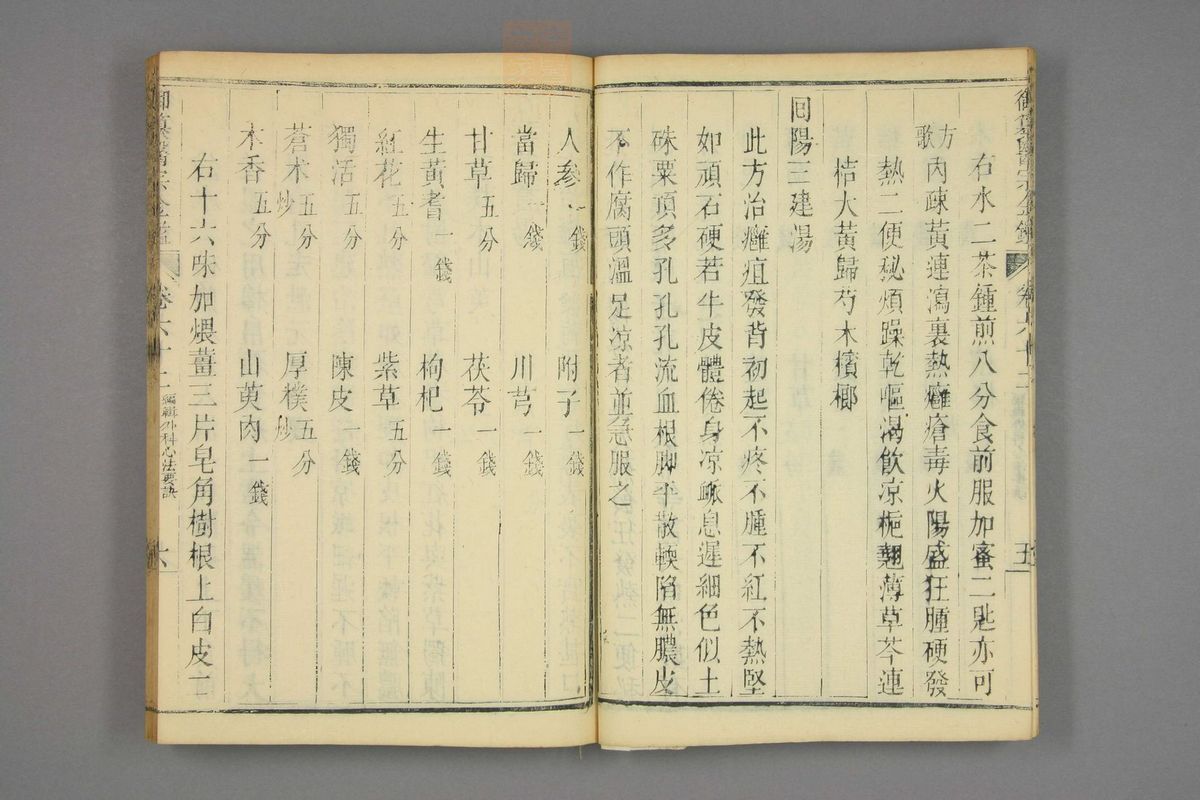 御纂醫宗金鑑 卷六十二 五
右水二茶鍾煎八分食前服加蜜二匙亦可
方歌 內疎黃連瀉裏熱癰瘡毒火陽盛狂腫硬發
熱二便秘煩躁乾嘔渴飲凉梔翹薄草芩連
桔大黃歸芍木檳榔
囘陽三建湯
此方治癰疽發背初起不疼不腫不紅不熱堅
如頑石硬若牛皮體倦身凉䘑息遲細色似土
硃粟頂多孔孔孔流血根脚平散輭陷無膿皮
不作腐頭溫足凉者並急服之
人參一錢 附子一錢
當歸一錢 川芎一錢
甘草五分 茯苓一錢
生黃耆一錢 枸杞一錢
紅花五分 紫草五分
獨活五分 陳皮一錢
蒼朮炒五分 厚樸炒五分
木香五分 山萸肉一錢
右十六味加煨薑三片皂角樹根上白皮二
御纂醫宗金鑑 卷六十二 編輯外科心法要訣 六